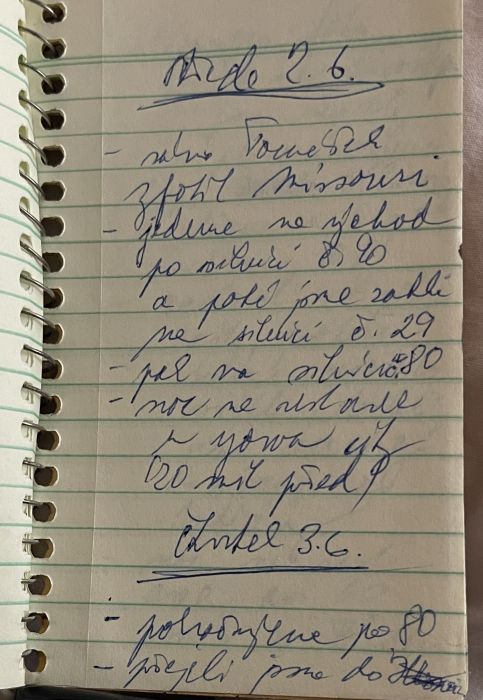 Středa 2.6.
- ráno Tomášek
zfotil Missouri
- jedeme na východ
po silnici č. 90
a poté jsme zahli
na silnici č. 29
- pak na silnici č. 80
- noc na restarea
u yowa
20 mil před
Čtvrtek 3.6.
- pokračujeme po 80
- přejeli jsme do